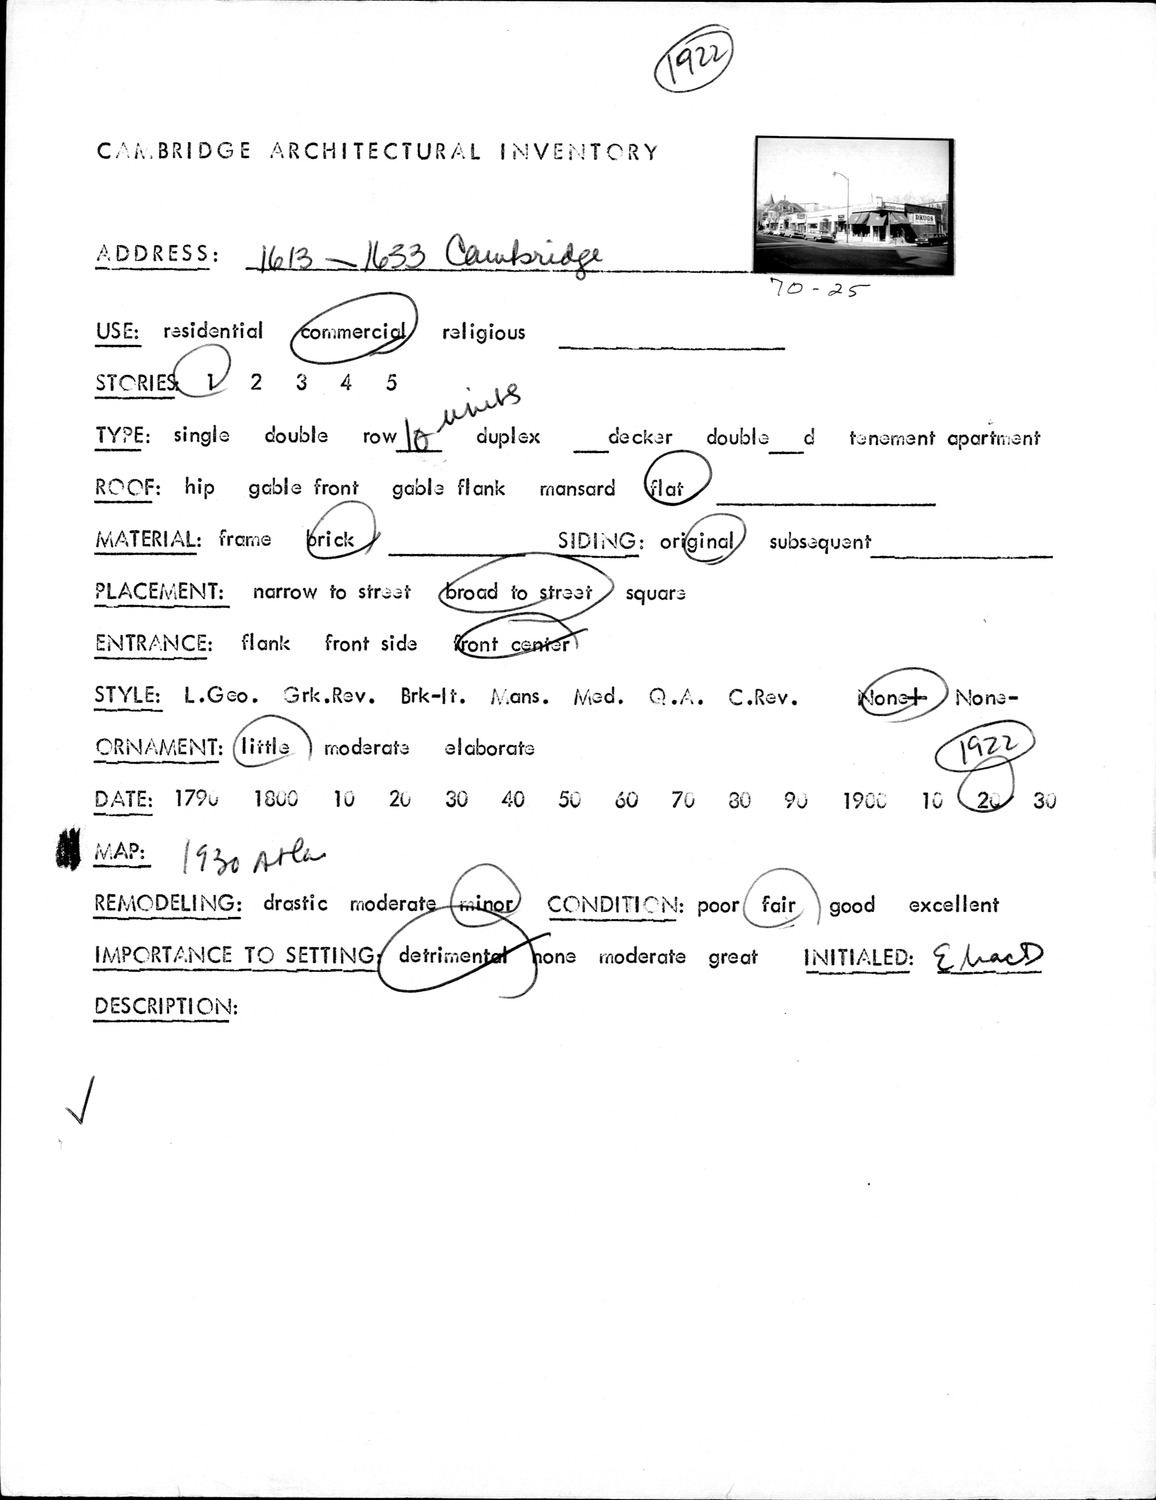 1922
CAMBRIDGE ARCHITECTURAL INVENTORY
DRUGS
ADDRESS: 1613 – 1633 Cambridge
70-25
USE: residential commercial religious
STORIES: 1 2 3 4 5
TYPE: single double row 10 units duplex ___decker double___d tenement apartment
ROOF: hip gable front gable flank mansard flat
MATERIAL: frame brick SIDING: original subsequent
PLACEMENT: narrow to street broad to street square
ENTRANCE: flank front side front center
STYLE: L.Geo. Grk.Rev. Brk-It. Mans. Med. Q.A. C.Rev. None+ None-
ORNAMENT: little moderate elaborate
1922
DATE: 1790 1800 10 20 30 40 50 60 70 80 90 1900 10 20 30
MAP: 1930 Atlas
REMODELING: drastic moderate minor CONDITION: poor fair good excellent
IMPORTANCE TO SETTING: detrimental none moderate great INITIALED:
DESCRIPTION: